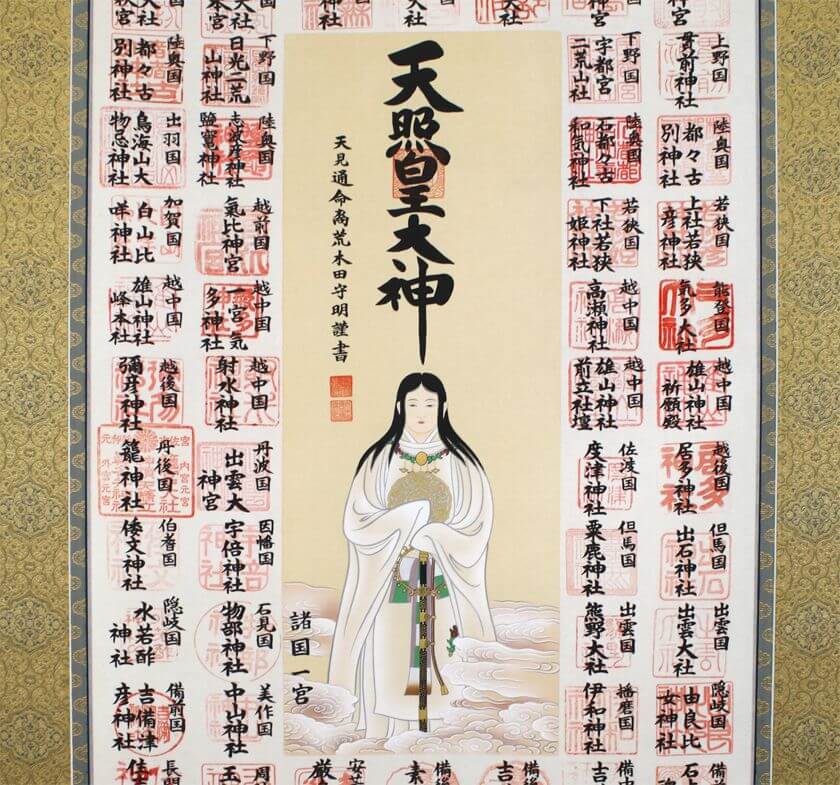 神宮
神宮
大社
神社
本宮
大社
上野国
貫前神社
下野国
宇都宮
二荒山神社
下野国
日光二荒
山神社
陸奥国
都々古
別神社
陸奥国
都々古
別神社
陸奥国
石都々古
和気神社
陸奥国
志波彦神社
鹽竈神社
出羽国
鳥海山大
物忌神社
若狭国
上社若狭
彦神社
若狭国
下社若狭
姫神社
越前国
氣比神宮
加賀国
白山比
咩神社
能登国
気多大社
越中国
高瀬神社
越中国
一宮気
多神社
越中国
雄山神社
峰本社
越中国
雄山神社
祈願殿
越中国
雄山神社
前立社壇
越中国
射水神社
越後国
彌彦神社
越後国
居多神社
佐渡国
度津神社
丹波国
出雲大
神宮
丹後国
籠神社
但馬国
出石神社
但馬国
粟鹿神社
因幡国
宇倍神社
伯耆国
倭文神社
出雲国
出雲大社
出雲国
熊野大社
石見国
物部神社
隠岐国
水若酢
神社
隠岐国
由良比
女神社
播磨国
伊和神社
美作国
中山神社
備前国
吉備津
彦神社
備前国
石上
備中
吉備
備後
吉備
備後
素
安芸
厳
周防
玉
長門
住吉
天照皇大神
天見通命裔荒木田守明謹書
諸国一宮